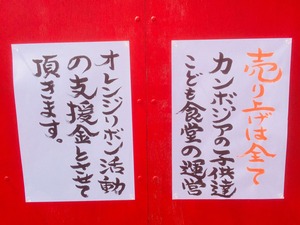 売り上げは全て
カンボジアの子供達
こども食堂の運営
オレンジリボン活動
の支援金とさせて
頂きます。